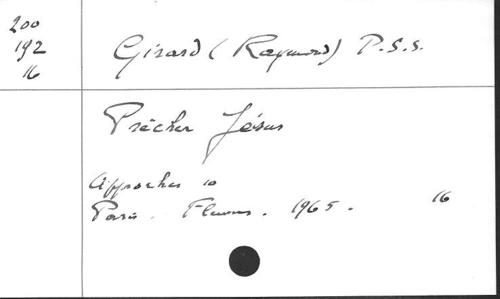 200
192
16
Girard (Raymond) P.S.S.
Prêcher Jésus
Approches 10
Paris. Fleurus. 1965. 16